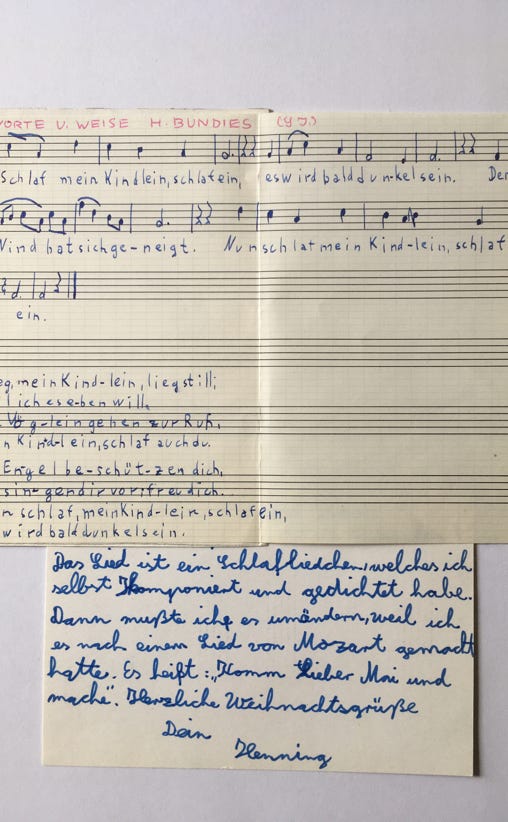 WORTE U. WEISE H. BUNDIES (9 J.)
Schlaf mein Kindlein, schlaf ein, es wird bald dunkel sein. Der
Wind hat sich ge-neigt. Nun schlaf mein Kind-lein, schlaf
ein.
mein Kind-lein, lieg still;
ich es e-ben will.
Vög-lein gehen zur Ruh,
Kind-lein, schlaf auch du.
Engel be-schüt-zen dich,
sin-gen dir vor, freu dich.
schlaf, mein Kind-lein, schlaf ein,
wird bald dunkel sein.
Das Lied ist ein Schlafliedchen, welches ich
selbst komponiert und gedichtet habe.
Dann mußte ich es umändern, weil ich
es nach einem Lied von Mozart gemacht
hatte. Es heißt: „Komm lieber Mai und
mache". Herzliche Weihnachtsgrüße
Dein
Henning